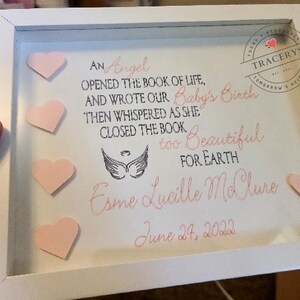 An Angel
opened the book of life,
and wrote our Baby's Birth
Then whispered as she
closed the book
too Beautiful
for Earth
Esme Lucille McClure
June 24, 2022
TRACERY